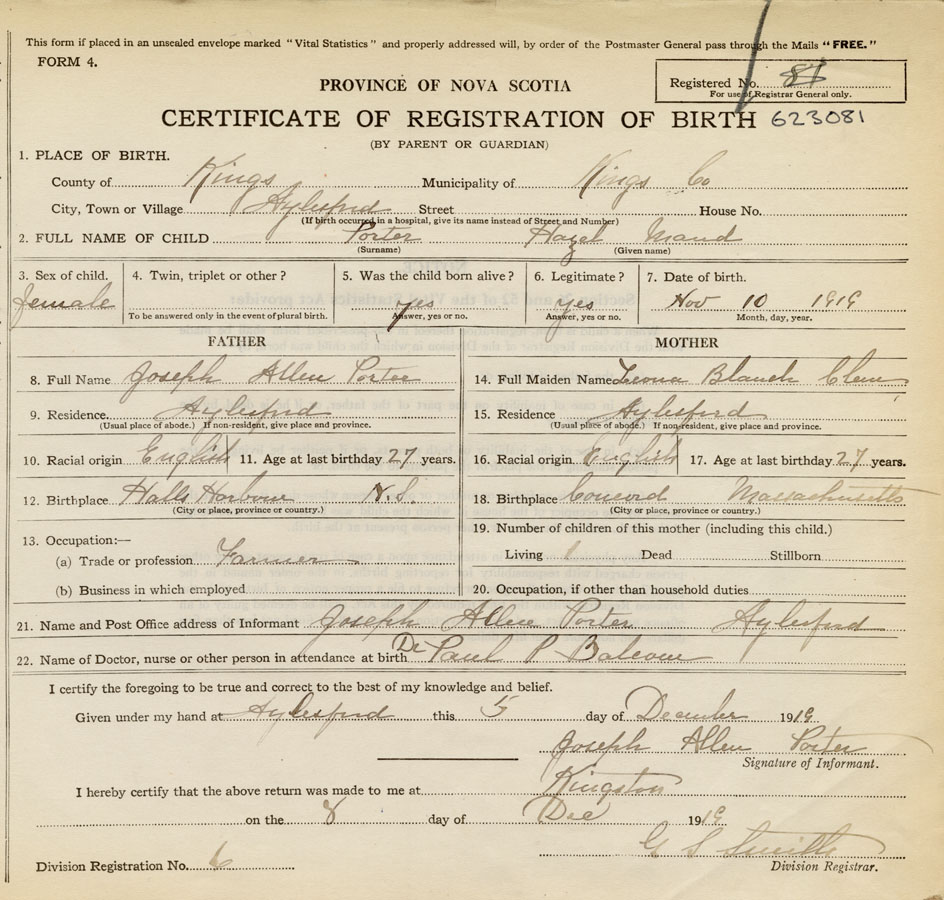 This form if placed in an unsealed envelope marked "Vital Statistics" and properly addressed will, by order of the Postmaster General pass through the Mails "FREE."
FORM 4.
Registered No. 81
For use of Registrar General only.
PROVINCE OF NOVA SCOTIA
CERTIFICATE OF REGISTRATION OF BIRTH 623081
(BY PARENT OR GUARDIAN)
1. PLACE OF BIRTH.
County of Kings Municipality of Kings Co
City, Town or Village Aylesford Street House No.
(If birth occurred in a hospital, give its name instead of Street and Number)
2. FULL NAME OF CHILD Porter Hazel Maud
(Surname) (Given name)
3. Sex of child. 4. Twin, triplet or other? 5. Was the child born alive? 6. Legitimate? 7. Date of birth.
female yes yes Nov 10 1919
To be answered only in the event of plural birth. Answer, yes or no. Answer, yes or no. Month, day, year.
FATHER MOTHER
8. Full Name Joseph Allen Porter 14. Full Maiden Name Leona Blanch
9. Residence Aylesford 15. Residence Aylesford
(Usual place of abode.) If non-resident, give place and province. (Usual place of abode.) If non-resident, give place and province.
10. Racial origin English 11. Age at last birthday 27 years. 16. Racial origin English 17. Age at last birthday 27 years.
12. Birthplace Halls Harbour N.S. 18. Birthplace Concord Massachusetts
(City or place, province or country.) (City or place, province or country.)
13. Occupation:— 19. Number of children of this mother (including this child.)
(a) Trade or profession Farmer Living 1 Dead Stillborn
(b) Business in which employed 20. Occupation, if other than household duties
21. Name and Post Office address of Informant Joseph Allen Porter Aylesford
22. Name of Doctor, nurse or other person in attendance at birth Dr Paul P Balcom
I certify the foregoing to be true and correct to the best of my knowledge and belief.
Given under my hand at Aylesford this 5 day of December 1919
Joseph Allen Porter
Signature of Informant.
I hereby certify that the above return was made to me at Kingston
on the 8 day of Dec 1919
G S Smith
Division Registration No. 6 Division Registrar.